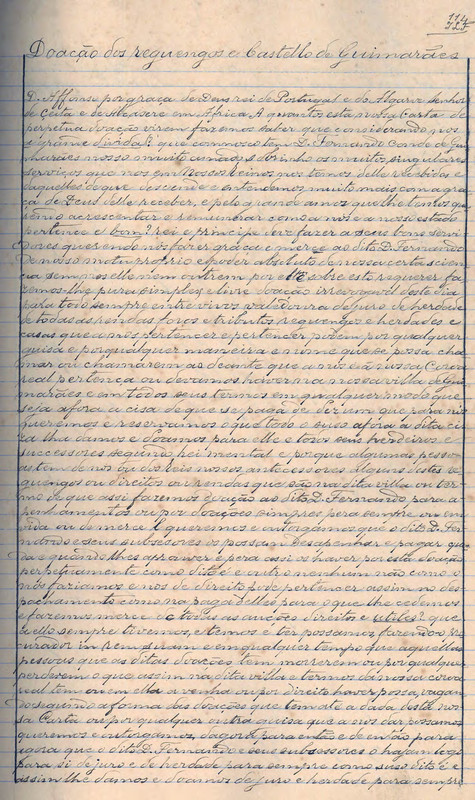 114
Doação dos reguengos e Castello de Guimarães
D. Affonso por graça de Deus rei de Portugal e do Algarve Senhor
de Ceita e de Alcacere em Africa A quantos esta nossa Carta de
perpetua doação virem fazemos saber que considerando nós
o grãme divida? que comnosco tem D. Fernando Conde de Gui
marães nosso muito amado sobrinho os muitos, singulares
serviços que nós em nossos reinos nos temos delle recebidos e
daquelles de que descende e entendemos muito mais com a gra
ça de Deus delle receber, e pelo grande amor que lhe temos que
rendo acrescentar e remunerar como a nós e a nosso estado
pertence e bom? rei e principe deve fazer a seus bons servi
dores querendo nós fazer graça e merce ao dito D. Fernando
De nosso motu proprio e poder absoluto de nossa certa scien
cia sem por elle nem outrem por elle sobre esto requerer fa
zemos-lhe pura simples e livre doação irrevogavel deste dia
para todo sempre entre vivos valedoura de juro e de herdade
de todas as rendas, foros e tributos, reguengos e herdades e
casas que a nós pertencer e pertender podem por qualquer
guisa e por qualquer maneira e nome que se possa cha
mar ou chamarem ao deante que a nós e á nossa Coroa
real pertença ou devamos haver na nossa villa de Gui
marães e em todos seus termos em qualquer modo que
seja afora a cisa de que se paga de dez um que para nós
queremos e reservamos o que todo e suso afora a dita ci
za lhe damos e doamos para elle e todos seus herdeiros e
successores segundo lei mental e porque algumas pessoas
as têm de nós ou dos reis nossos antecessores alguns destes re
guengos ou direitos ou rendas que são na dita villa ou ter
mo de que assi fazemos doação ao dito D. Fernando para a
penhamentos ou por doações simpres pera sempre ou em
vida ou de merce queremos e outorgamos que o dito D. Fer
nando e seus subcesores os possam desapenhar e pagar que
das quando lhes aprouver e pera assi os haver por esta doação
perpetuamente como dito é e outro nenhum não como o
nós fariamos e nos de direito pode pertencer assim no des
pachamento como na paga delles para o que lhe cedemos
e fazemos merce de todas as auções direitos e utiles? que
a ello sempre tivemos, e temos e ter possamos, fazendo-o pro
curador in rem suam e em qualquer tempo que aquellas
pessoas que as ditas doações tem morrerem ou por qualquer
perderem o que assim na dita villa e termos da nossa coroa
real tem ou em ella a venha ou por direito haver possa, vagan
do segundo a forma das doações que tem até a dada desta nos
sa Carta ou por qualquer outra guisa que a nós dar possamos
queremos e outorgamos, dagora para então e de então para
agora que o dito D. Fernando e seus subssessores o hajam logo
para si de juro e de herdade para sempre como suso dito é e
assim lhe damos e doamos de juro e herdade para sempre